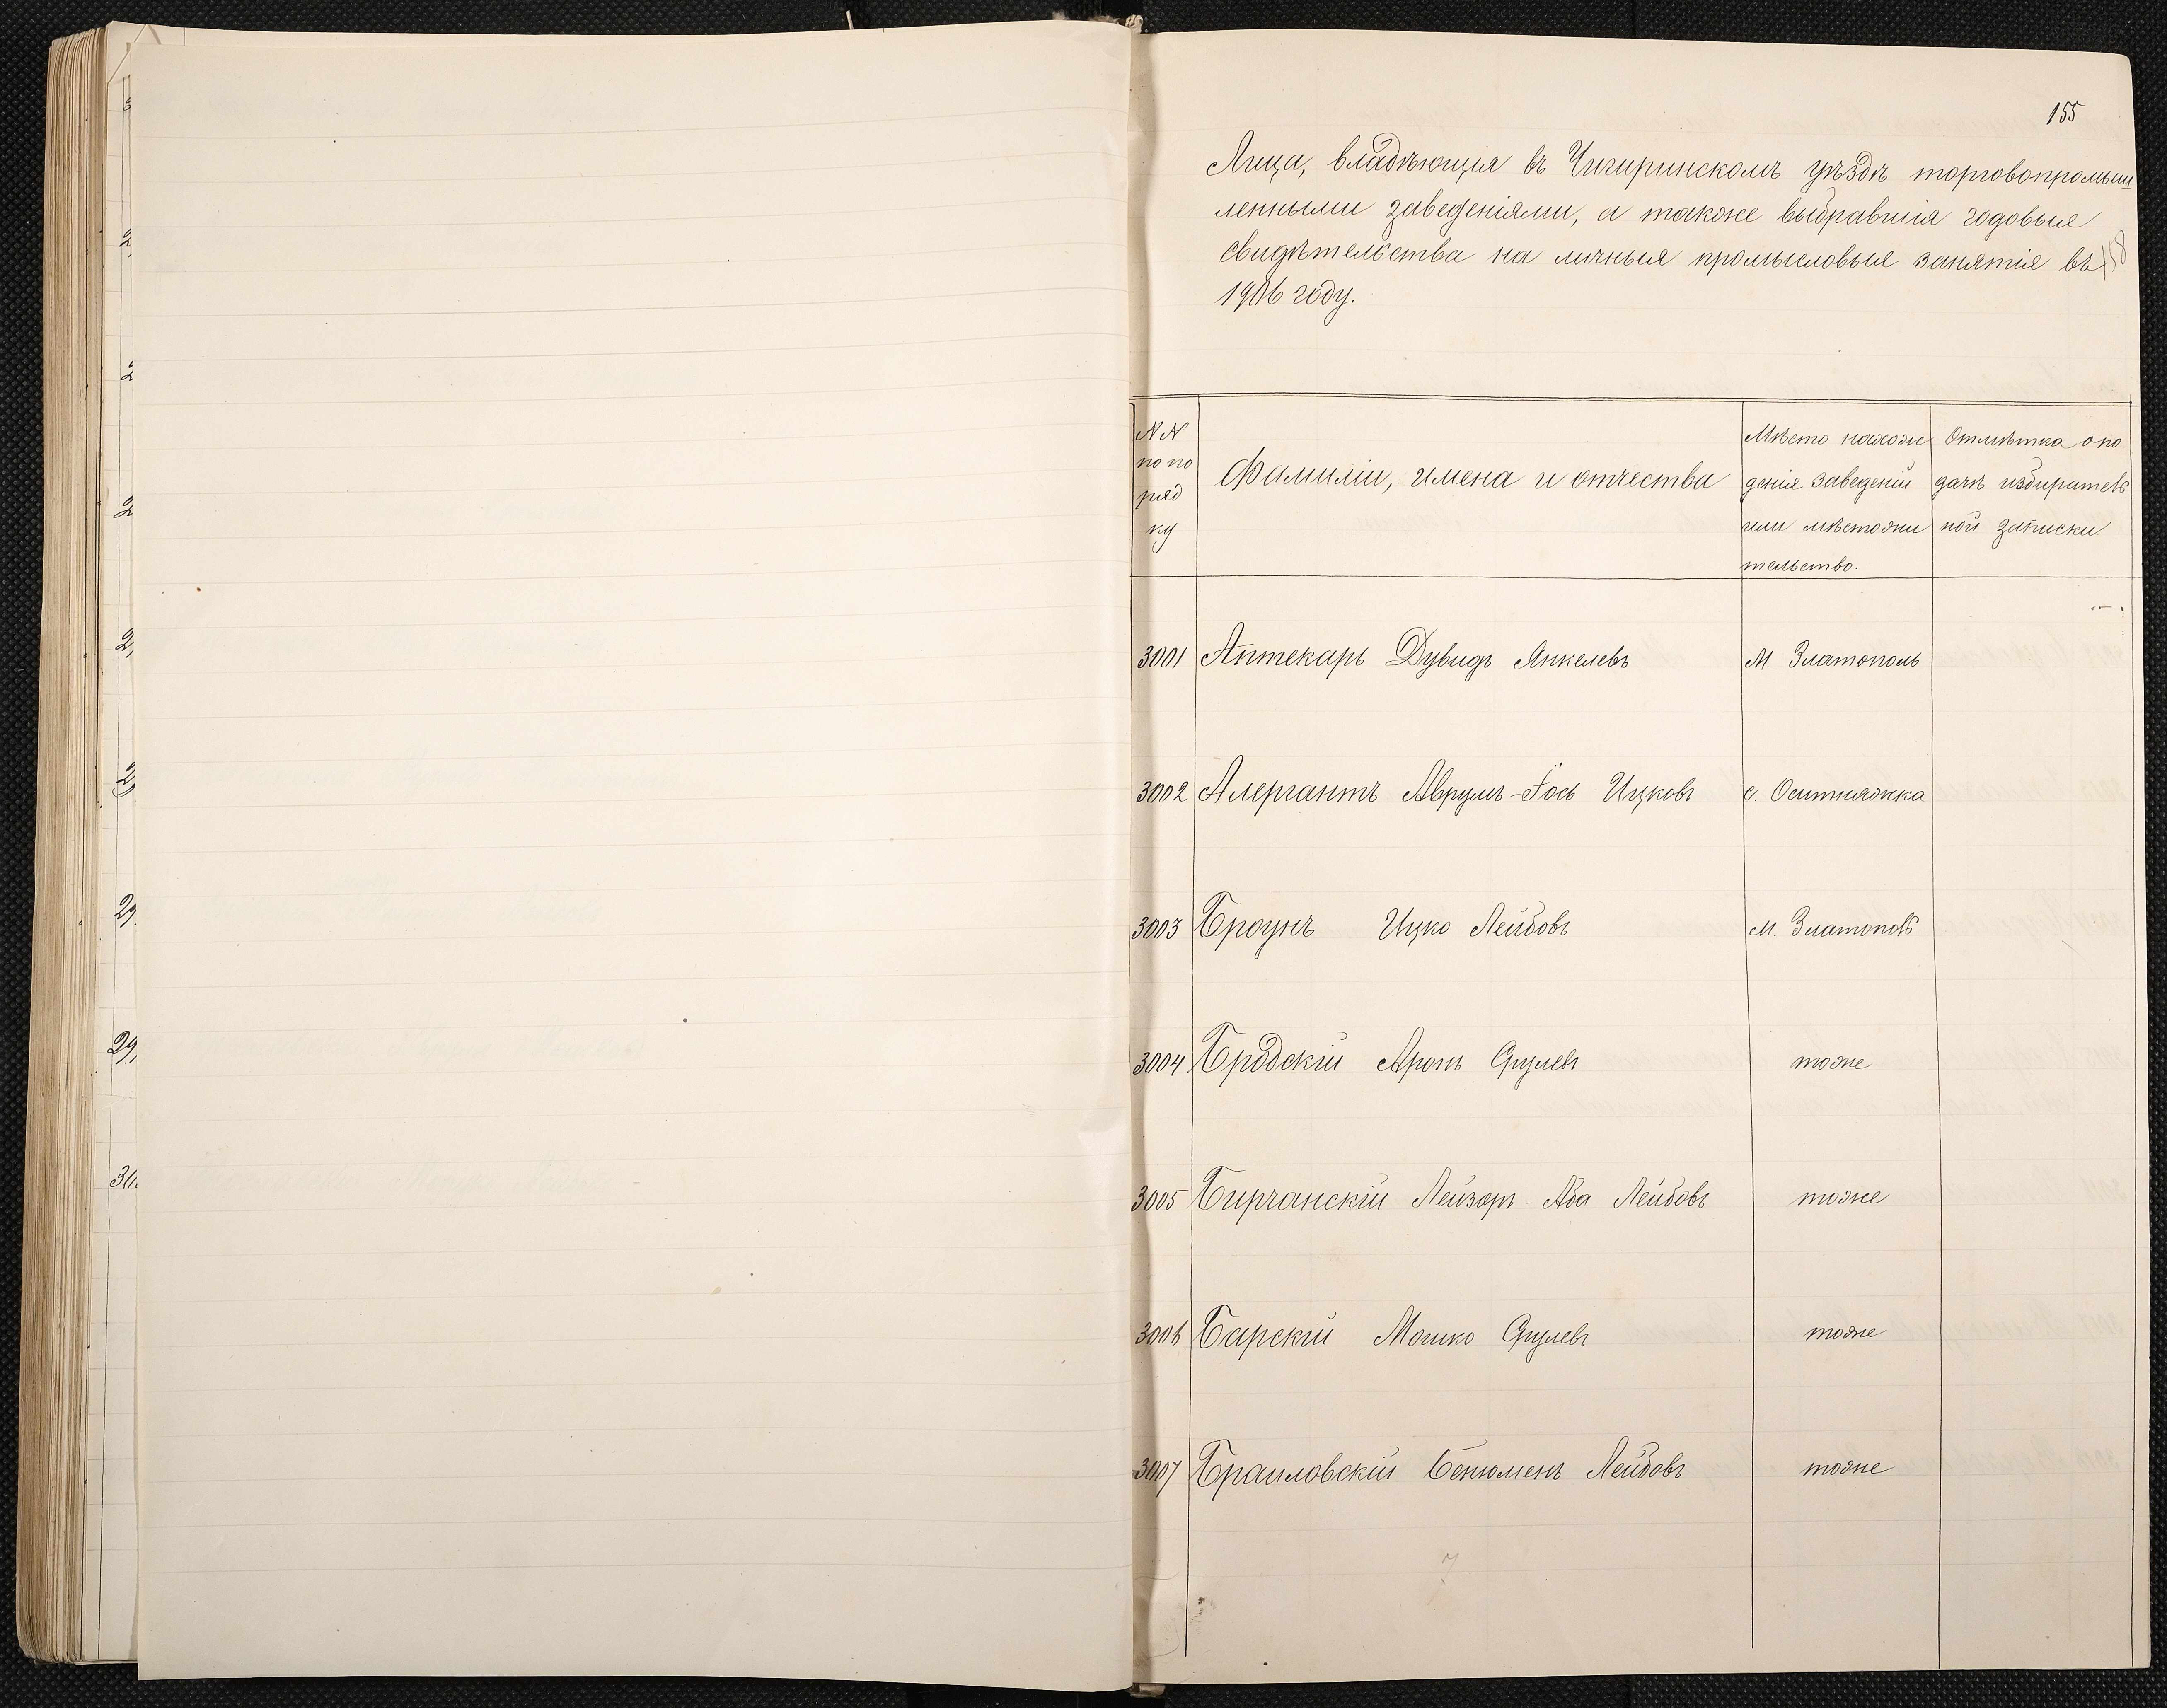 155
Лица, владѣющія въ Чигиринскомъ уѣздѣ торговопромыш
ленными заведеніями, а также выбравшія годовые
свидѣтельства на личныя промысловые занятія въ
1906 году.
№ №
по по
ряд
ку
Фамиліи, имена и отчества
Мѣсто нахож
денія заведеній
или мѣстожи
тельство.
Отмѣтка о по
дачѣ избиратель
ной записки.
3001 Аптекарь Дувидъ Янкелевъ м. Златополь
3002 Алергантъ Аврумъ-Іось Ицковъ с. Оситняжка
3003 Броунъ Ицко Лейбовъ м. Златополь
3004 Бродскій Аронъ Срулевъ тоже
3005 Бирчанскій Лейзоръ-Аба Лейбовъ тоже
3006 Барскій Мошко Срулевъ тоже
3007 Браиловскій Бенюменъ Лейбовъ тоже